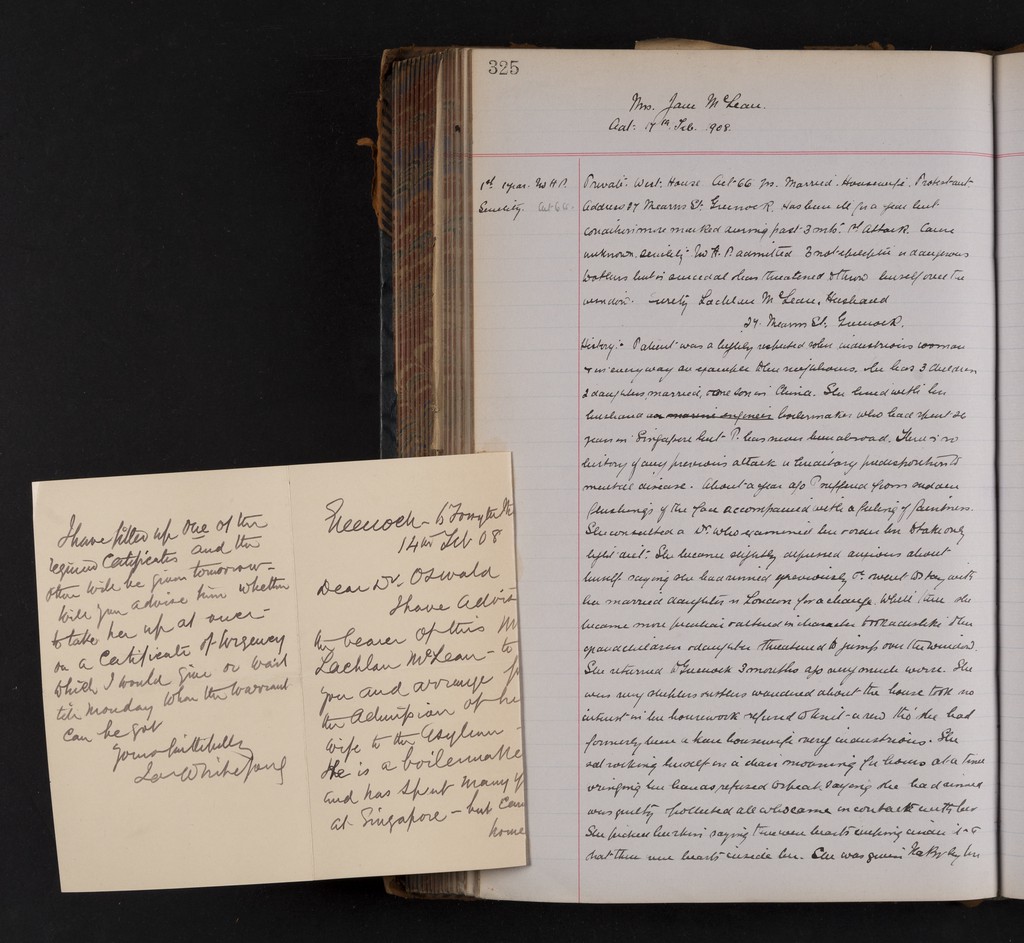 325
Mrs. Jane McLean.
Aat: 17th Feb. 1908.
1st year. No H.P.
Senility. aet 66.
Private. West House. Aet 66 yrs. Married. Housewife. Protestant.
Address 27 Mearns St. Greenock. Has been ill for a year but
condition more marked during past 3 mths. 1st Attack. Cause
unknown. senility. No H.P. admitted. Is not epileptic or dangerous
to others but is suicidal & has threatened to throw herself over the
window. Surety Lachlan McLean, Husband
27. Mearns St. Greenock.
History:- Patient was a highly respected sober industrious woman
& in every way an example to her neighbours. She has 3 children
2 daughters, married, & one son in China. She lived with her
husband a marine engineer boilermaker who had spent 20
years in Singapore but P. has never been abroad. There is no
history of any previous attack or hereditary predisposition to
mental disease. About a year ago P suffered from sudden
flushings of the face accompanied with a feeling of faintness.
She consulted a Dr. who examined her & ordered her to take only
light diet. She became slightly depressed & anxious about
herself saying she had sinned previously & went to stay with
her married daughter in London for a change. Whilst there she
became more peculiar & altered in character took a dislike to her
grandchildren & daughter & threatened to jump over the window.
She returned to Greenock 3 months ago very much worse. She
was very sleepless & restless wandered about the house took no
interest in her housework refused to knit & sew tho' she had
formerly been a keen housewife & very industrious. She
sat rocking herself in a chair moaning for hours at a time
wringing her hands & refused to speak. Saying she had sinned
was guilty & polluted all who came in contact with her
She picked her skin saying there were beasts creeping under it &
that there were beasts inside her. She was given by her
I have filled up one of the
required Certificates and the
other will be given tomorrow-
Will you advise him whether
to take her up at once-
on a Certificate of Urgency
which I would give or wait
till Monday when the Warrant
can be got
Yours faithfully
Greenock- 6 Forsyth
14th Feb 08
Dear Dr. Oswald
I have Advis
the bearer of this M
Lachlan McLean- to
you and arrange f
the Admission of he
wife to the Asylum-
He is a boilermake
and has spent many y
at Singapore- but cam
home